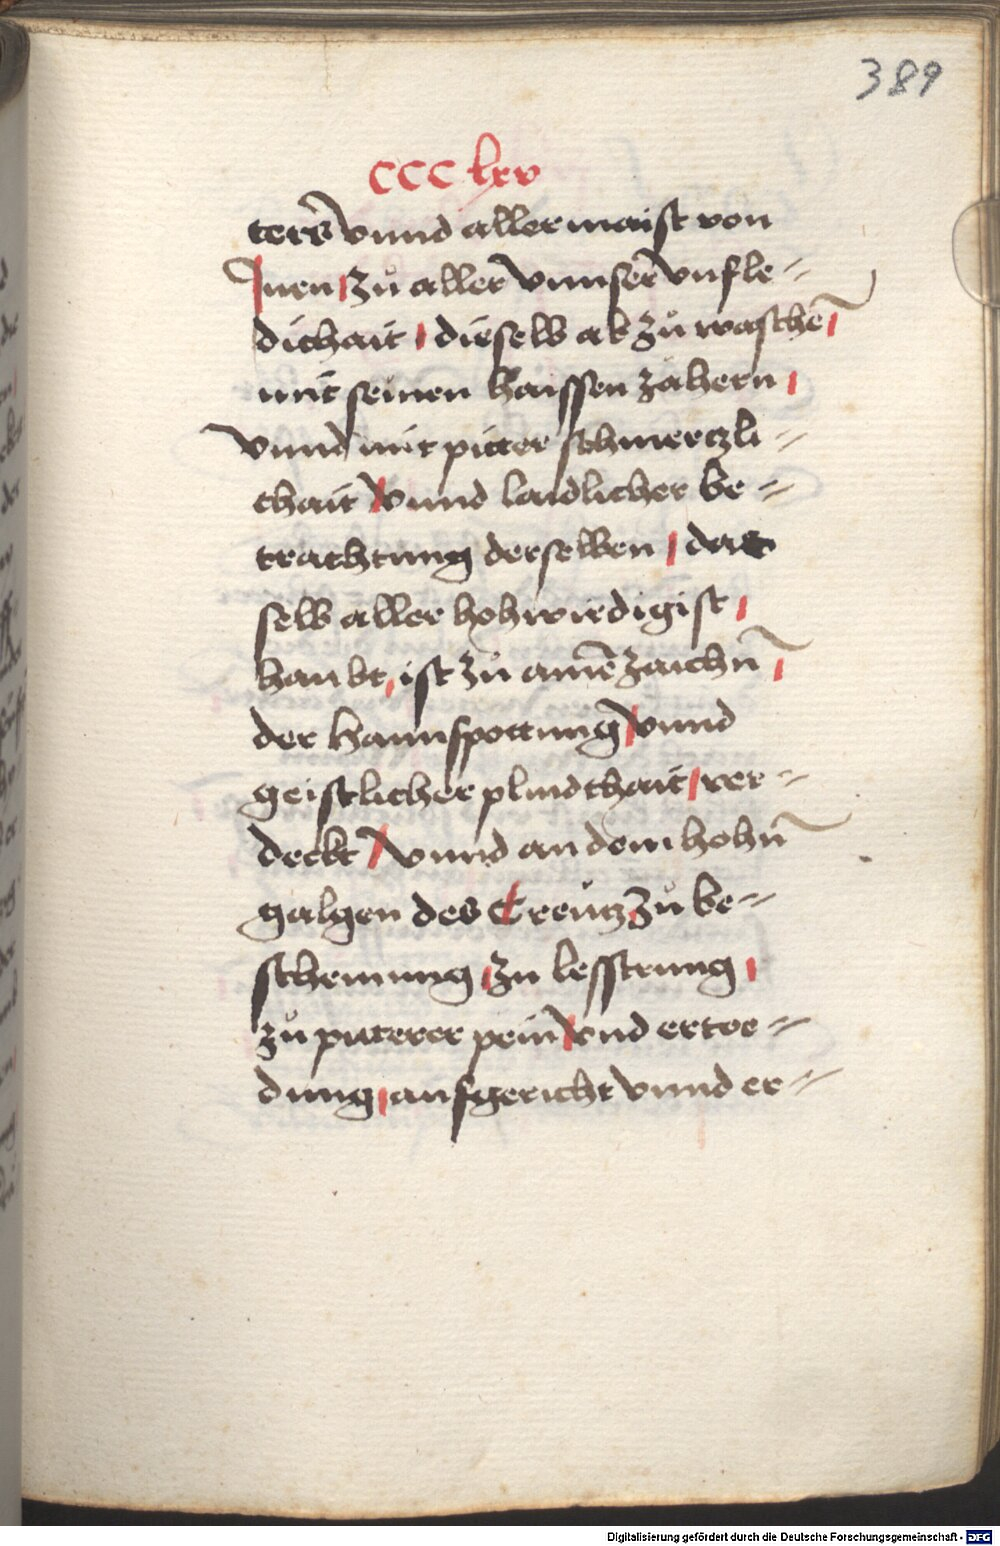 389
CCC lxv
ters vnnd aller maist von
Jnen zů aller vnnser vnfle=
dichait dieselb ab zů waschē
mit seinen haissen zähern
vnnd mit pitter schmertzli=
chait vnnd laidlicher be=
trachtung derselben das
selb aller hohwirdigist
haubt ist zů ainē zaichn̄
der hannspottung vnnd
geistlicher plindthait ver=
deckt vnnd an dem hohn̄
galgen des Creütz zů be=
schemung zu lesstrung
zů pitterer pein vnd ertoe=
dung aufgericht vnnd er=
Digitalisierung gefördert durch die Deutsche Forschungsgemeinschaft - DFG